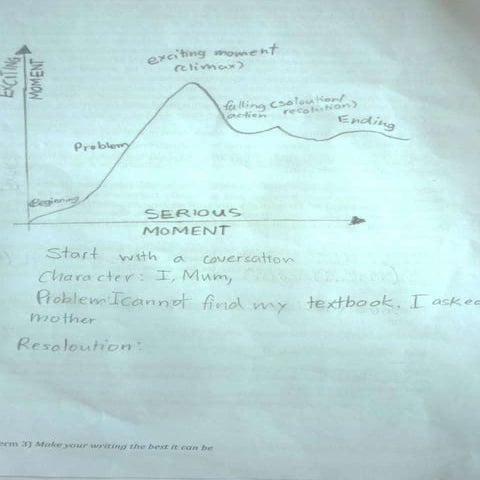 EXCITING
MOMENT
exciting moment
(climax)
falling (soloution/
action resoloution)
Ending
Problem
Beginning
SERIOUS
MOMENT
Start with a coversation
Character: I, Mum,
Problem: I cannot find my textbook. I asked
mother
Resoloution:
erm 3) Make your writing the best it can be